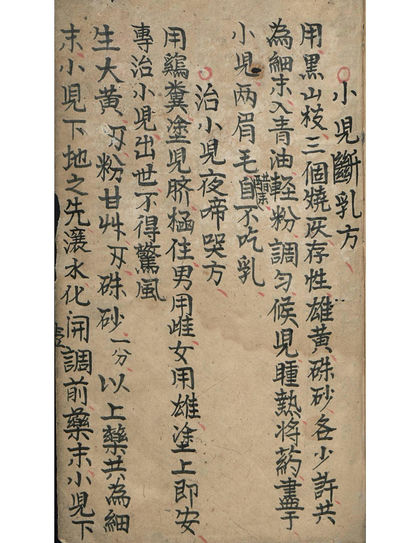 小児斷乳方
用黑山枝三個燒灰存性雄黄硃砂各少許共
為細末入青油輕粉調匀候児睡熟将药畫于
小児両眉毛自不吃乳
治小児夜啼哭方
用鷄糞塗児臍極住男用雌女用雄塗上即安
專治小児出世不得驚風
生大黄 粉甘艸 硃砂一分以上藥共為細
末小児下地之先滚水化開調前藥末小児下